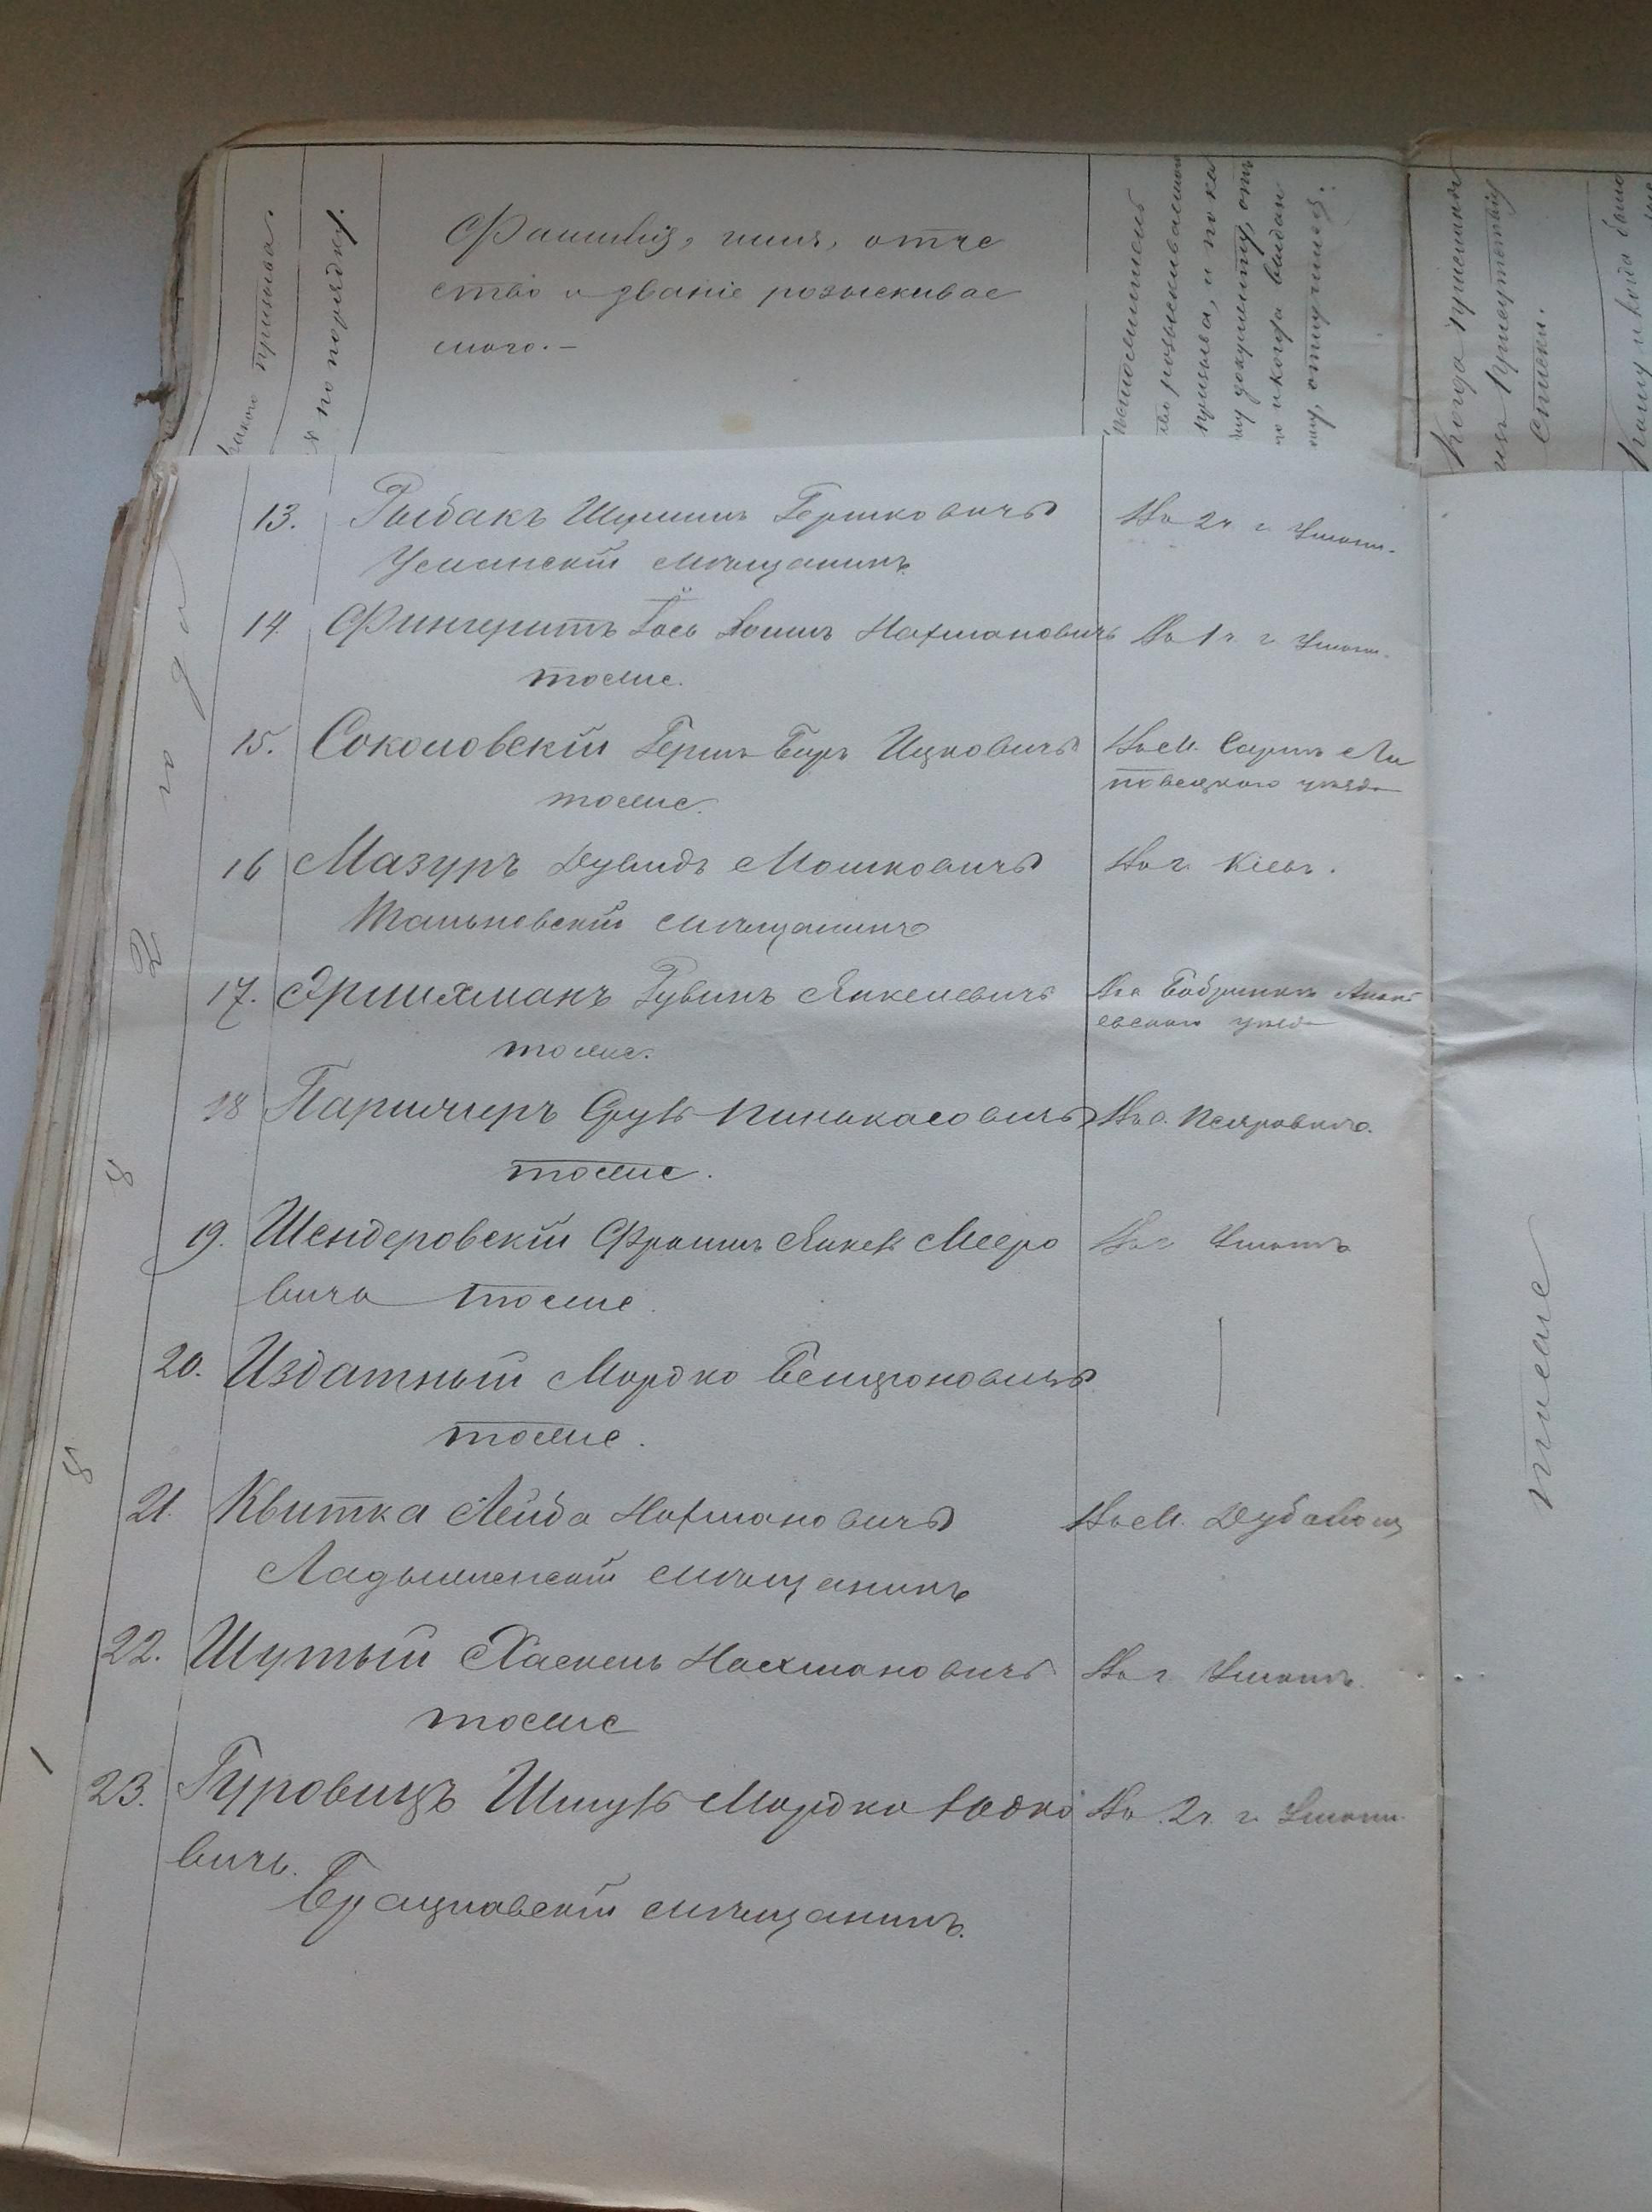 Фамилія, имя, отче
ство и званіе розыскивае
мого.–
какого призыва.
№ по порядку.
розыскиваемый
призыва, и по ка
му документу, от
го и когда выдан
му, отлучился.
Когда
списки.
Кому и когда было
13. Рыбакъ Шулимъ Гершковичъ
Уманскій мѣщанинъ.
Въ 2 ч. г. Умани.
14. Фингеритъ Іось Хаимъ Нахмановичъ
тоже.
Въ 1 ч. г. Умани.
15. Соколовскій Гершъ Беръ Ицковичъ
тоже.
Въ м. Сарнъ Ли
повецкаго уѣзда
16 Мазуръ Дувидъ Мошковичъ
Тальновскій мѣщанинъ
Въ г. Кіевъ.
17. Эрлихманъ Рувинъ Янкелевичъ
тоже.
Бобринкъ Анань
евскаго уѣзда
18 Паричеръ Сруль Пинькасовичъ
тоже.
Въ с. Псяровкѣ.
19. Шендеровскій Фроимъ Янкель Мееро
вичъ тоже.
Въ г. Умань
20. Издатный Мордко Бенціоновичъ
тоже.
21. Квитка Лейба Нахмановичъ
Ладыженскій мѣщанинъ
Въ м. Дубовой
22. Шутый Хаскель Нахмановичъ
тоже
Въ г. Умань.
23. Гуровицъ Шмуль Мордко Іодко
вичъ.
Брацлавскій мѣщанинъ.
Въ 2 ч. г. Умани.
тоже